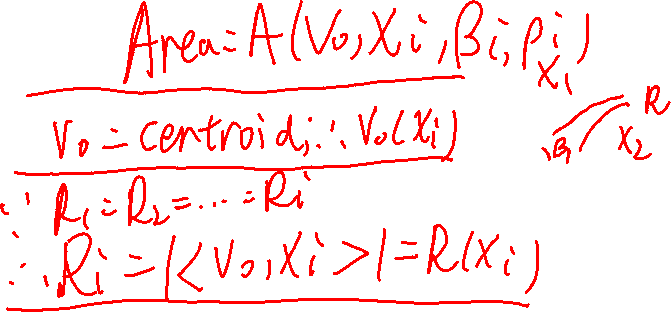 Area=A(V₀,Xi,βi,ρi)
V₀=centroid;∴V₀(Xi)
X₁
R
β₁
X₂
∵R₁=R₂=...=Ri
∴Ri=|<V₀,Xi>|=R(Xi)